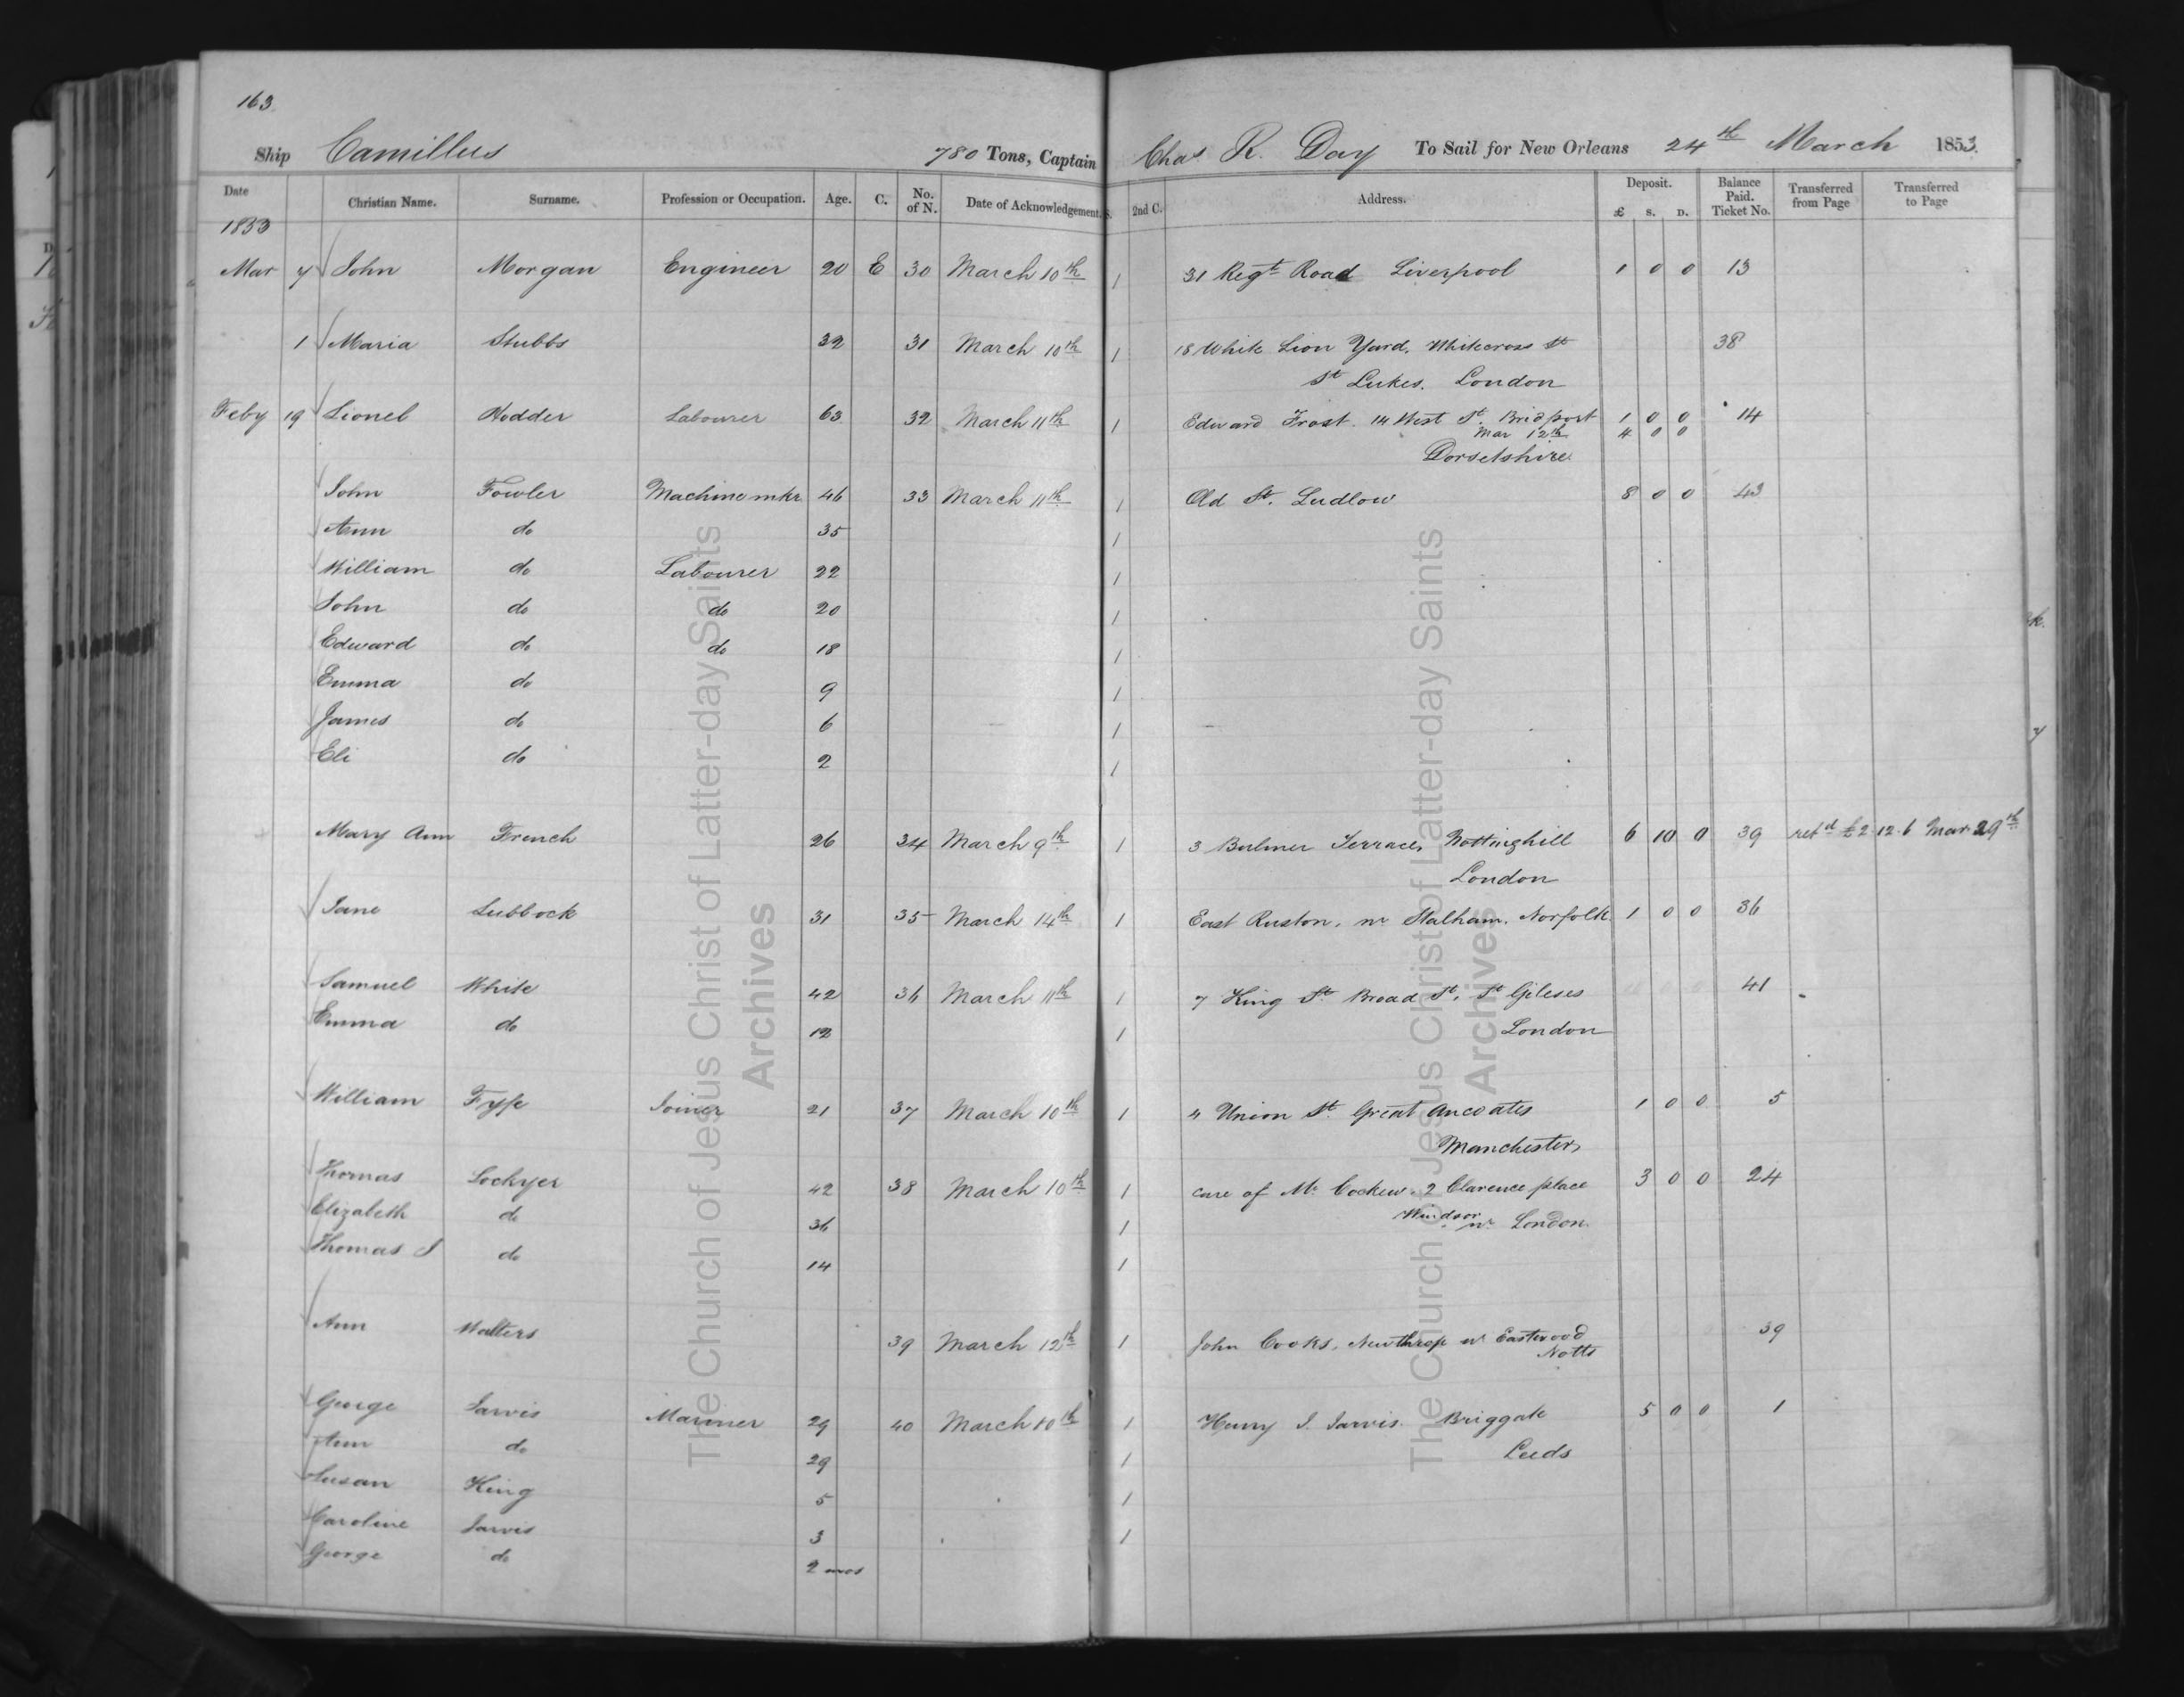 163
Ship Camillus 780 Tons, Captain Chas R. Day To Sail for New Orleans 24th March 1853.
Date Christian Name. Surname. Profession or Occupation. Age. C. No. of N. Date of Acknowledgement. S. 2nd C. Address. Deposit. £ S. D. Balance Paid. Ticket No. Transferred from Page Transferred to Page
1853
Mar 7 John Morgan Engineer 20 E 30 March 10th 1 31 Regt Road Liverpool 1 0 0 13
1 Maria Stubbs 32 31 March 10th 1 18 White Lion Yard, Whitecross St 38
St Lukes. London
Feby 19 Lionel Nodder Labourer 63 32 March 11th 1 Edward Frost. 14 West St. Bridport 1 0 0 14
Mar 12th 4 0 0
Dorsetshire
John Fowler Machine mkr 46 33 March 11th 1 Old St. Ludlow 8 0 0 43
Ann do 35 1
William do Labourer 22 1
John do do 20 1
Edward do do 18 1
Emma do 9 1
James do 6 1
Eli do 2 1
Mary Ann French 26 34 March 9th 1 3 Bulmer Terrace, Nottinghill 6 10 0 39 retd £2.12.6 Mar 29th
London
Jane Lubbock 31 35 March 14th 1 East Ruston, nr Stalham, Norfolk 1 0 0 36
Samuel White 42 36 March 11th 1 7 King St. Broad St. St Gileses 41
Emma do 12 1 London
William Fyfe Joiner 21 37 March 10th 1 4 Union St. Great Ancoates 1 0 0 5
Manchester,
Thomas Lockyer 42 38 March 10th 1 care of Mr Cockew, 2 Clarence place 3 0 0 24
Elizabeth do 36 1 Windsor nr London
Thomas J do 14 1
Ann Walters 39 March 12th 1 John Cooks, Newthrop nr Eastwood 39
Notts
George Jarvis Mariner 29 40 March 10th 1 Henry J. Jarvis. Briggate 5 0 0 1
Ann do 29 1 Leeds
Susan King 5 1
Caroline Jarvis 3 1
George do 2 mos
The Church of Jesus Christ of Latter-day Saints
Archives
The Church of Jesus Christ of Latter-day Saints
Archives